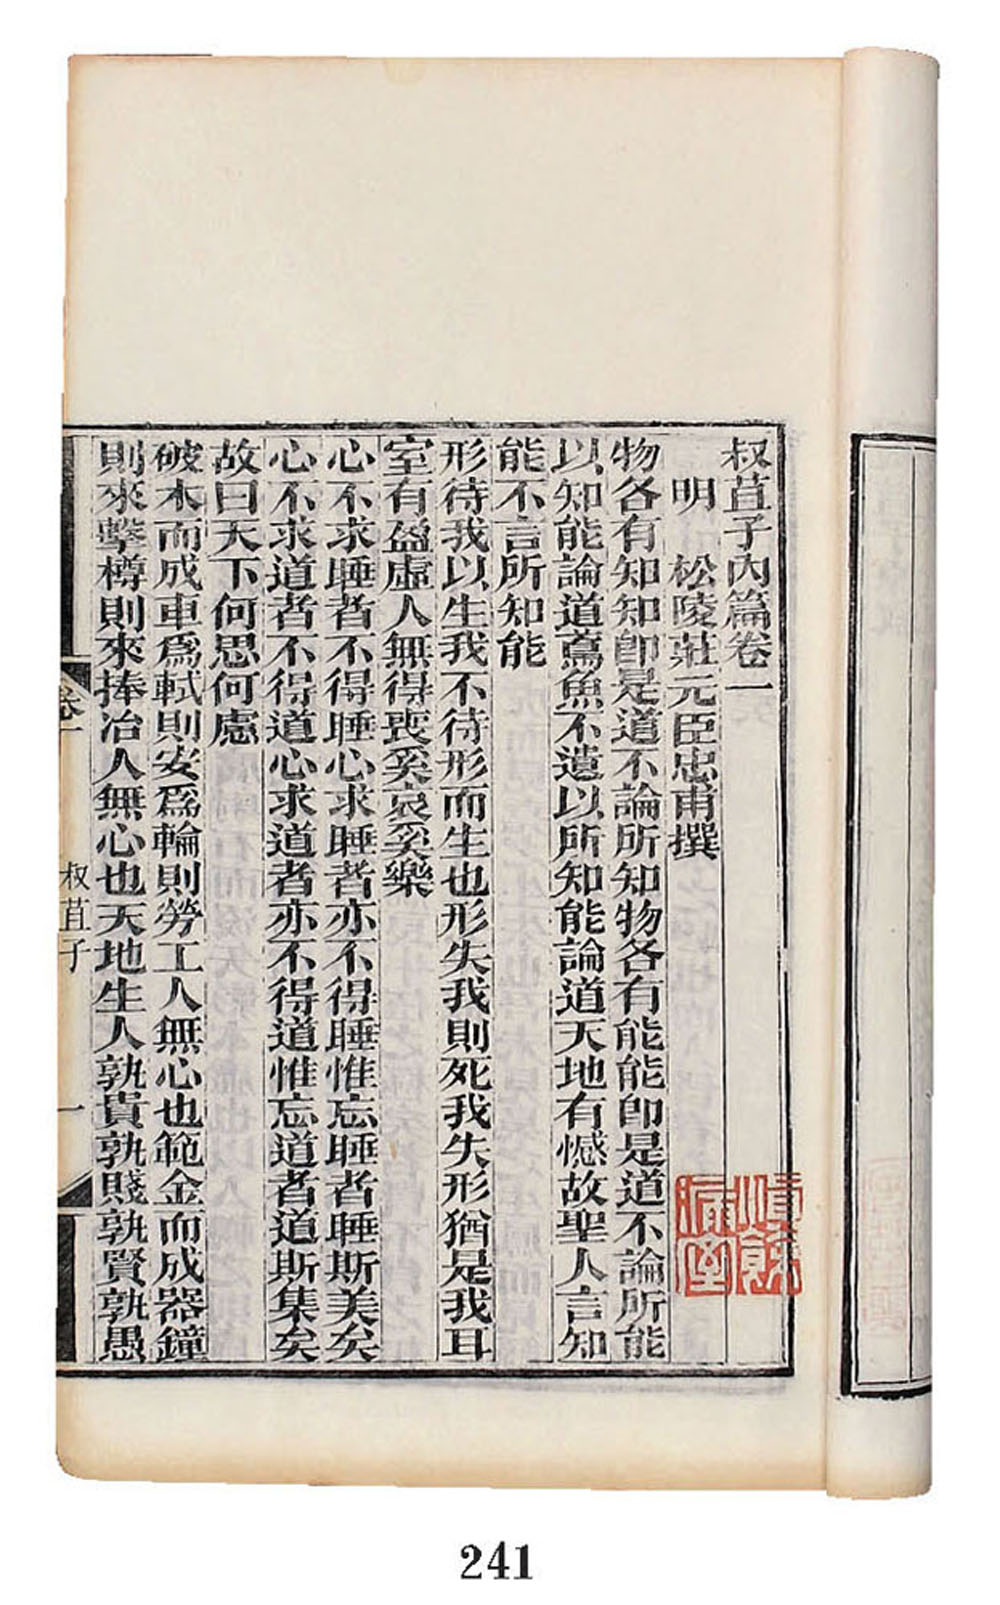 叔苴子內篇卷一
明 松陵莊元臣忠甫撰
物各有知知卽是道不論所知物各有能能卽是道不論所能
以知能論道鳶魚不遺以所知能論道天地有憾故聖人言知
能不言所知能
形待我以生我不待形而生也形失我則死我失形猶是我耳
室有盈虛人無得喪奚哀奚樂
心不求睡者不得睡心求睡者亦不得睡惟忘睡者睡斯美矣
心不求道者不得道心求道者亦不得道惟忘道者道斯集矣
故曰天下何思何慮
破木而成車爲軾則安爲輪則勞工人無心也範金而成器鐘
則來擊樽則來捧冶人無心也天地生人孰貴孰賤孰賢孰愚
卷一
叔苴子
一
241